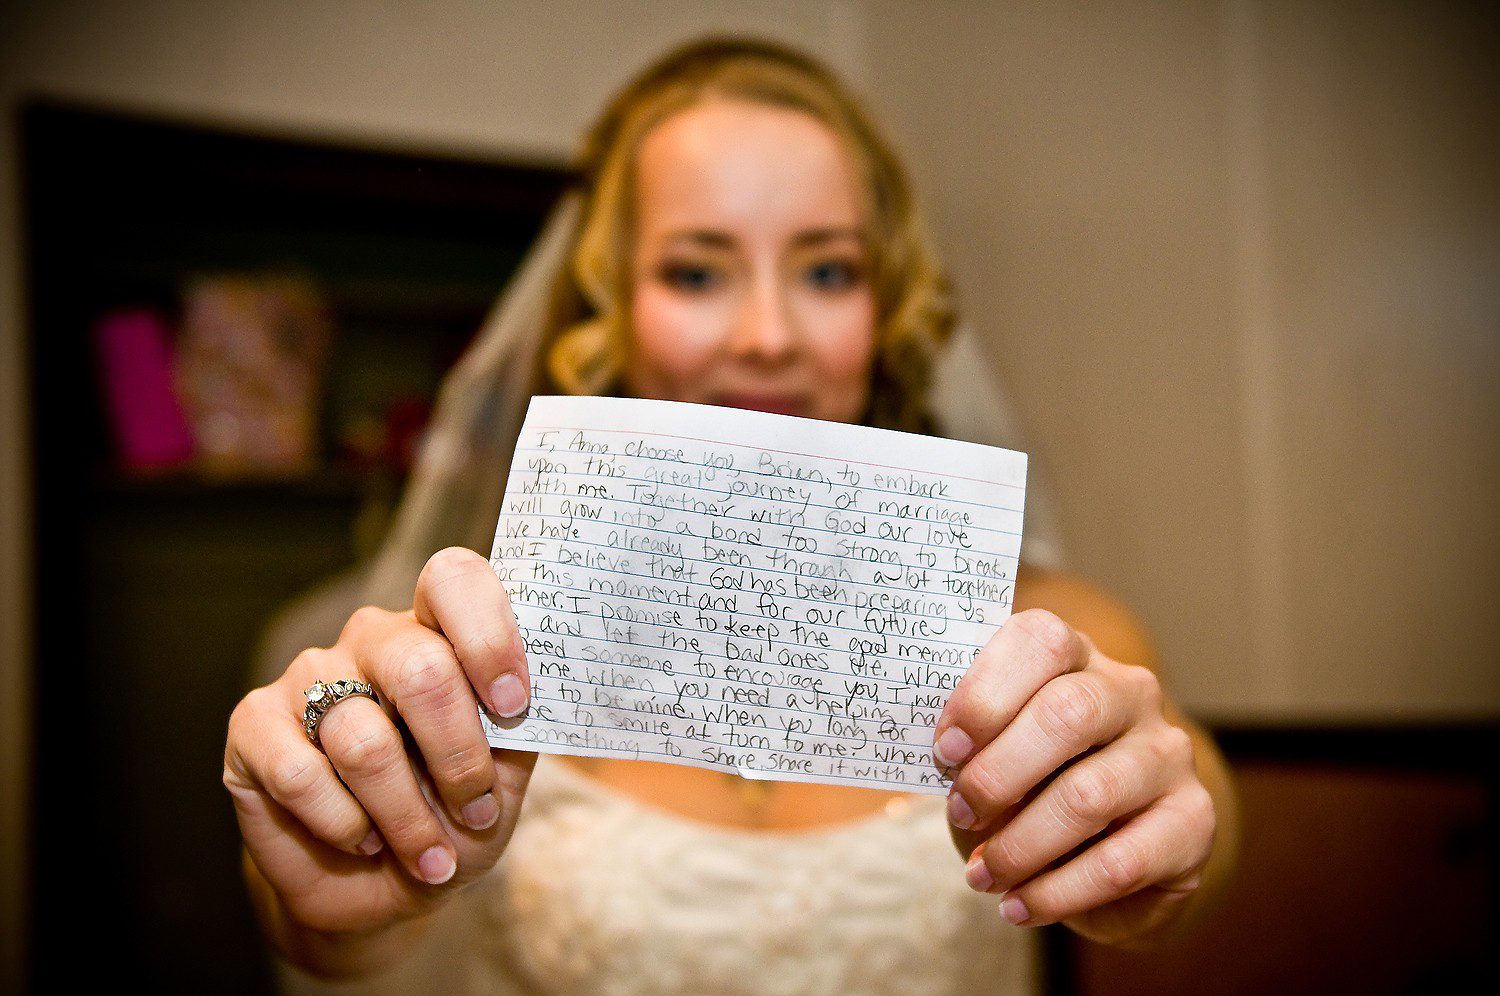 I, Anna, choose you, Brian, to embark
upon this great journey of marriage
with me. Together with God our love
will grow into a bond too strong to break.
We have already been through a lot together,
and I believe that God has been preparing us
for this moment and for our future
ether. I promise to keep the good memorie
and let the bad ones die. When
need someone to encourage you, I wan
me. When you need a helping ha
t to be mine. When you long for
be to smile at turn to me. When
something to share, share it with me